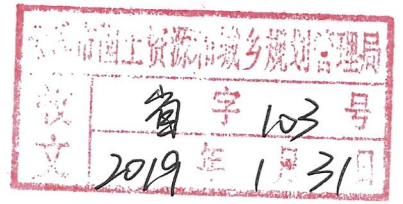 市国土资源和城乡规划管理局
收文
字 103 号
2019 年 1 月 31 日